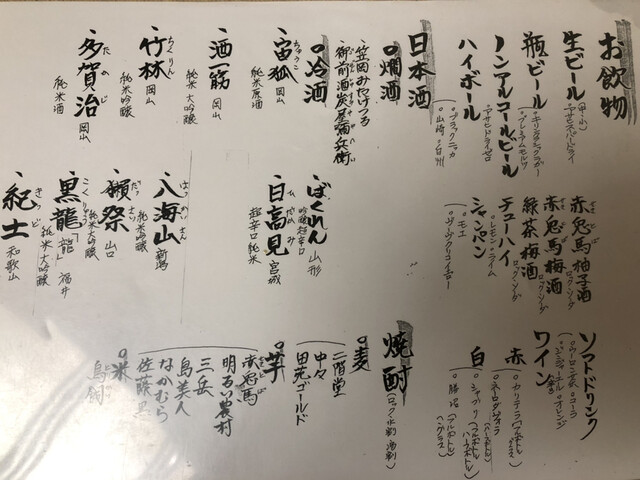 お飲物
生ビール(中・小)
・アサヒスーパードライ
瓶ビール
・キリンラガー
・プレミアムモルツ
ノンアルコールビール
・アサヒドライゼロ
ハイボール
・ブラックニッカ
・山崎・白州
日本酒
○燗酒
笠岡みたける
御前酒 炭屋彌兵衛
○冷酒
宙狐 ちゅうこ 岡山
純米原酒
酒一筋 岡山
純米大吟醸
竹林 ちくりん 岡山
純米吟醸
多賀治 たかじ 岡山
純米酒
赤鬼馬柚子酒
ロック・ソーダ
赤鬼馬梅酒
緑茶梅酒
ロック・ソーダ
チューハイ
・レモン・ライム
シャンペン
・モエ
・ヴーヴクリコイエロー
ばくれん 山形
吟醸超辛口
日高見 ひたかみ 宮城
超辛口純米
八海山 はっかいさん 新潟
純米吟醸
獺祭 だっさい 山口
純米大吟醸
黒龍 こくりゅう 「龍」 福井
純米大吟醸
紀土 きっど 和歌山
ソフトドリンク
・ウーロン茶・コーラ
・ジンジャーエール・オレンジ
ワイン
赤
・カリテラ(フルボトル グラス)
・ネロ(フルボトル ハーフボトル)
白
・シャブリ(フルボトル ハーフボトル)
・勝沼(フルボトル グラス)
焼酎(ロック・水割・湯割)
○麦
二階堂
中々
田苑ゴールド
○芋
赤兎馬
明るい農村
三岳
島美人
なかむら
佐藤黒
○米
鳥飼